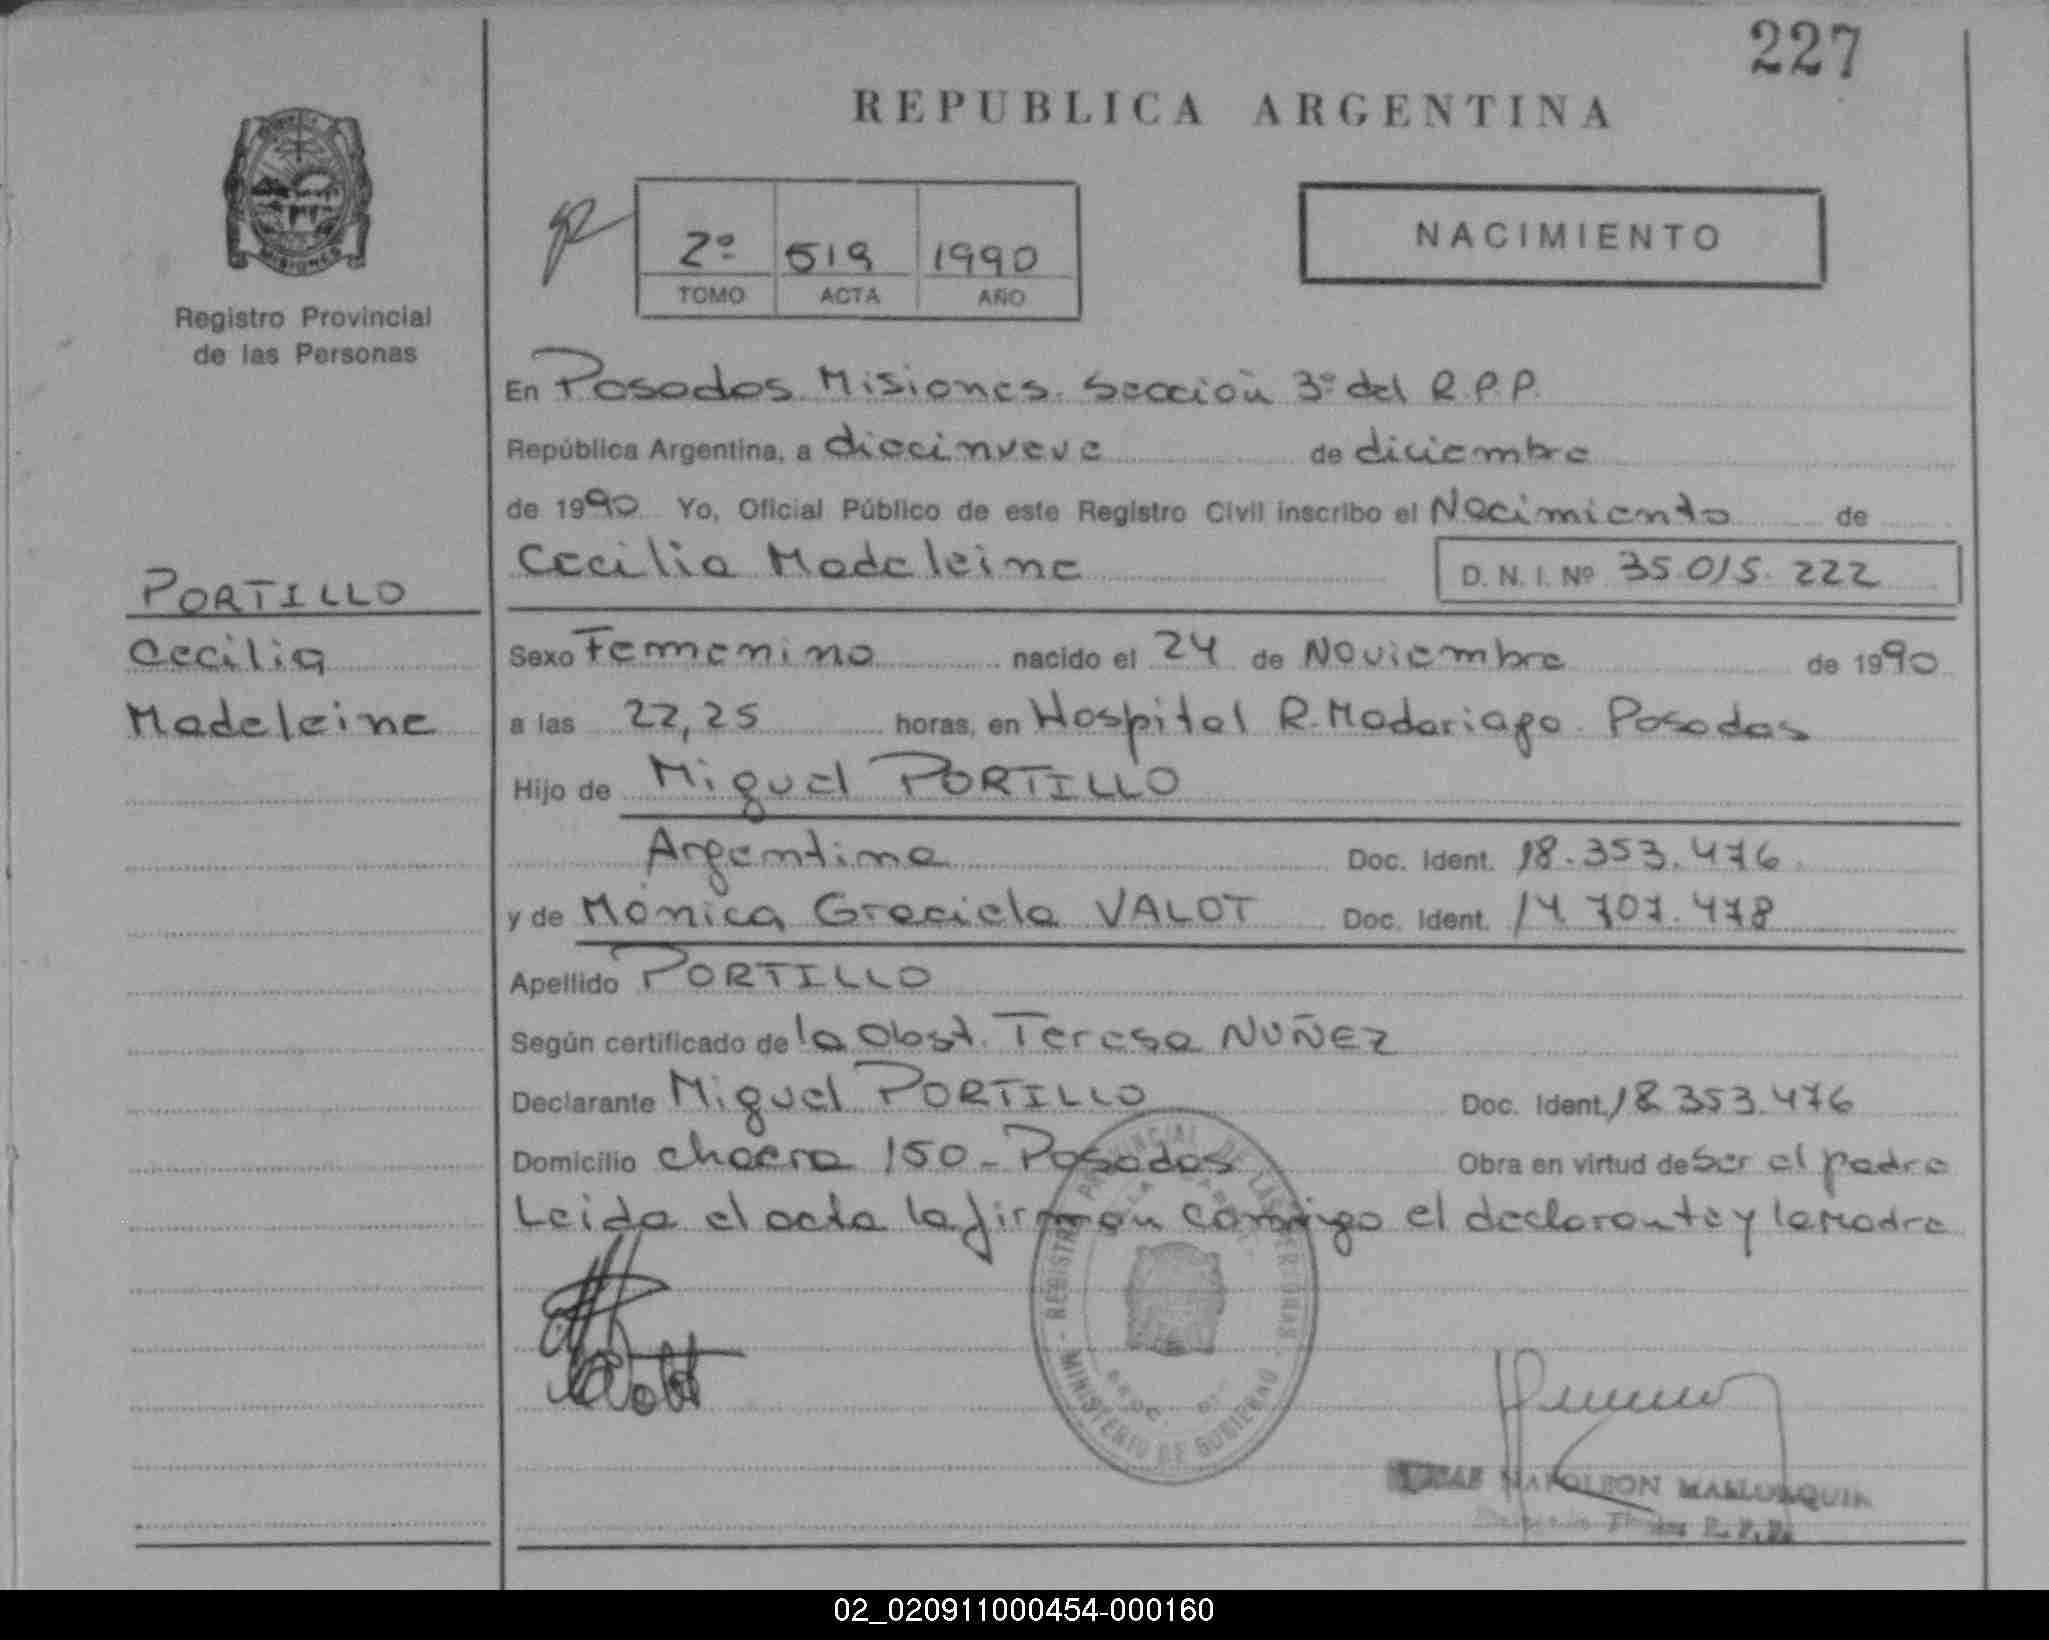 227
REPUBLICA ARGENTINA
MISIONES
Registro Provincial
de las Personas
2º 519 1990
TOMO ACTA AÑO
NACIMIENTO
En Posadas Misiones. Sección 3º del R.P.P.
República Argentina, a diecinueve de diciembre
de 1990 Yo, Oficial Público de este Registro Civil inscribo el Nacimiento de
Cecilia Madeleine D. N. I. Nº 35.015.222
PORTILLO
Cecilia
Madeleine
Sexo Femenino nacido el 24 de Noviembre de 1990
a las 22,25 horas, en Hospital R. Madariaga. Posadas
Hijo de Miguel PORTILLO
Argentina Doc. Ident. 18.353.476
y de Mónica Graciela VALOT Doc. Ident. 14.707.478
Apellido PORTILLO
Según certificado de la Obst. Teresa NUÑEZ
Declarante Miguel PORTILLO Doc. Ident. 18.353.476
Domicilio chacra 150 - Posadas Obra en virtud de ser el padre
Leida el acta la firman conmigo el declarante y la madre
REGISTRO PROVINCIAL DE LAS PERSONAS
MINISTERIO DE GOBIERNO
NAPOLEON
02_020911000454-000160